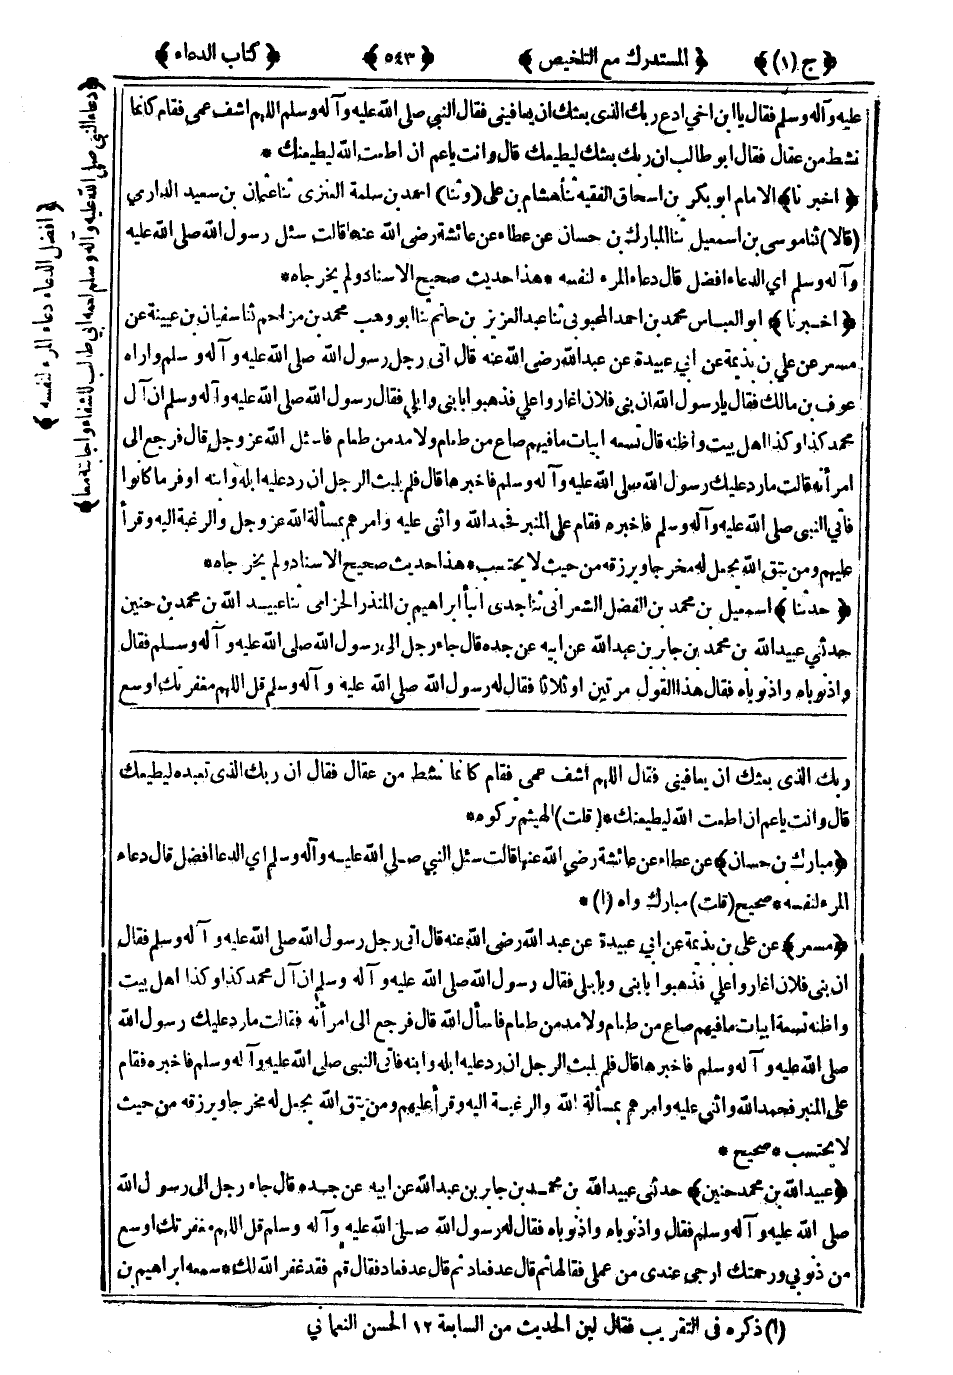 ﴿ ج (١) ﴾ ﴿ المستدرك مع التلخيص ﴾ ﴿ ٥٤٣ ﴾ ﴿ كتاب الدعاء ﴾
عليه وآله وسلم فقال يا ابن اخي ادع ربك الذى بعثك ان يعافينى فقال النبي صلى الله عليه وآله وسلم اللهم اشف عمى فقام كانما
نشط من عقال فقال ابو طالب ان ربك بعثك ليطيعك قال وانت ياعم ان اطعت الله ليطيعنك *
﴿ اخبرنا ﴾ الامام ابو بكر بن اسحاق الفقيه ثنا هشام بن على (وثنا) احمد بن سلمة العنزى ثنا عثمان بن سعيد الدارمي
(قالا) ثنا موسى بن اسمعيل ثنا المبارك بن حسان عن عطاء عن عائشة رضى الله عنها قالت سئل رسول الله صلى الله عليه
وآله وسلم اي الدعاء افضل قال دعاء المرء لنفسه * هذا حديث صحيح الاسناد ولم يخرجاه *
﴿ اخبرنا ﴾ ابو العباس محمد بن احمد المحبوبى ثنا عبد العزيز بن حاتم ثنا ابو وهب محمد بن مزاحم ثنا سفيان بن عيينة عن
مسعر عن علي بن بذيمة عن ابي عبيدة عن عبد الله رضى الله عنه قال اتى رجل رسول الله صلى الله عليه وآله وسلم واراه
عوف بن مالك فقال يا رسول الله ان بنى فلان اغاروا علي فذهبوا بابنى وابلي فقال رسول الله صلى الله عليه وآله وسلم ان آل
محمد كذا وكذا اهل بيت واظنه قال تسعه ابيات مافيهم صاع من طعام ولا مد من طعام فاسئل الله عز وجل قال فرجع الى
امرأته قالت مارد عليك رسول الله صلى الله عليه وآله وسلم فاخبرها قال فلم يلبث الرجل ان رد عليه ابله وابنه اوفر ما كانوا
فأتي النبى صلى الله عليه وآله وسلم فاخبره فقام على المنبر فحمد الله واثنى عليه وامرهم بمسألة الله عز وجل والرغبة اليه وقرأ
عليهم ومن يتق الله يجعل له مخرجا ويرزقه من حيث لا يحتسب * هذا حديث صحيح الاسناد ولم يخرجاه *
﴿ حدثنا ﴾ اسمعيل بن محمد بن الفضل الشعرانى ثنا جدى انبأ ابراهيم بن المنذر الحزامى ثنا عبيد الله بن محمد بن حنين
حدثني عبيد الله بن محمد بن جابر بن عبد الله عن ابيه عن جده قال جاء رجل الى رسول الله صلى الله عليه وآله وسلم فقال
واذنوباه واذنوباه فقال هذا القول مرتين او ثلاثا فقال له رسول الله صلى الله عليه وآله وسلم قل اللهم مغفرتك اوسع
ربك الذى بعثك ان يعافينى فقال اللهم اشف عمى فقام كانما نشط من عقال فقال ان ربك الذى تعبده ليطيعك
قال وانت ياعم ان اطعت الله ليطيعنك * (قلت) الهيثم تركوه *
﴿ مبارك بن حسان ﴾ عن عطاء عن عائشة رضى الله عنها قالت سئل النبي صلى الله عليه وآله وسلم اي الدعا افضل قال دعاء
المرء لنفسه * صحيح (قلت) مبارك واه (١) *
﴿ مسعر ﴾ عن على بن بذيمة عن ابي عبيدة عن عبد الله رضى الله عنه قال اتى رجل رسول الله صلى الله عليه وآله وسلم فقال
ان بنى فلان اغاروا علي فذهبوا بابنى وبابلى فقال رسول الله صلى الله عليه وآله وسلم ان آل محمد كذا وكذا اهل بيت
واظنه تسعة ابيات مافيهم صاع من طعام ولا مد من طعام فاسأل الله قال فرجع الى امرأته فقالت مارد عليك رسول الله
صلى الله عليه وآله وسلم فاخبرها قال فلم يلبث الرجل ان رد عليه ابله وابنه فأتى النبى صلى الله عليه وآله وسلم فاخبره فقام
على المنبر فحمد الله واثنى عليه وامرهم بمسألة الله والرغبة اليه وقرأ عليهم ومن يتق الله يجعل له مخرجا ويرزقه من حيث
لا يحتسب * صحيح *
﴿ عبيد الله بن محمد حنين ﴾ حدثنى عبيد الله بن محمد بن جابر بن عبد الله عن ابيه عن جده قال جاء رجل الى رسول الله
صلى الله عليه وآله وسلم فقال واذنوباه واذنوباه فقال له رسول الله صلى الله عليه وآله وسلم قل اللهم مغفرتك اوسع
من ذنوبي ورحمتك ارجى عندى من عملى فقالها ثم قال عد فعاد ثم قال عد فعاد فقال قم فقد غفر الله لك * سمعه ابراهيم بن
(١) ذكره فى التقريب فقال لين الحديث من السابعة ١٢ الحسن النعماني
﴿ دعاء النبى صلى الله عليه وآله وسلم لعمه ابي طالب للشفاء واجابته معا ﴾
﴿ افضل الدعاء دعاء المرء لنفسه ﴾